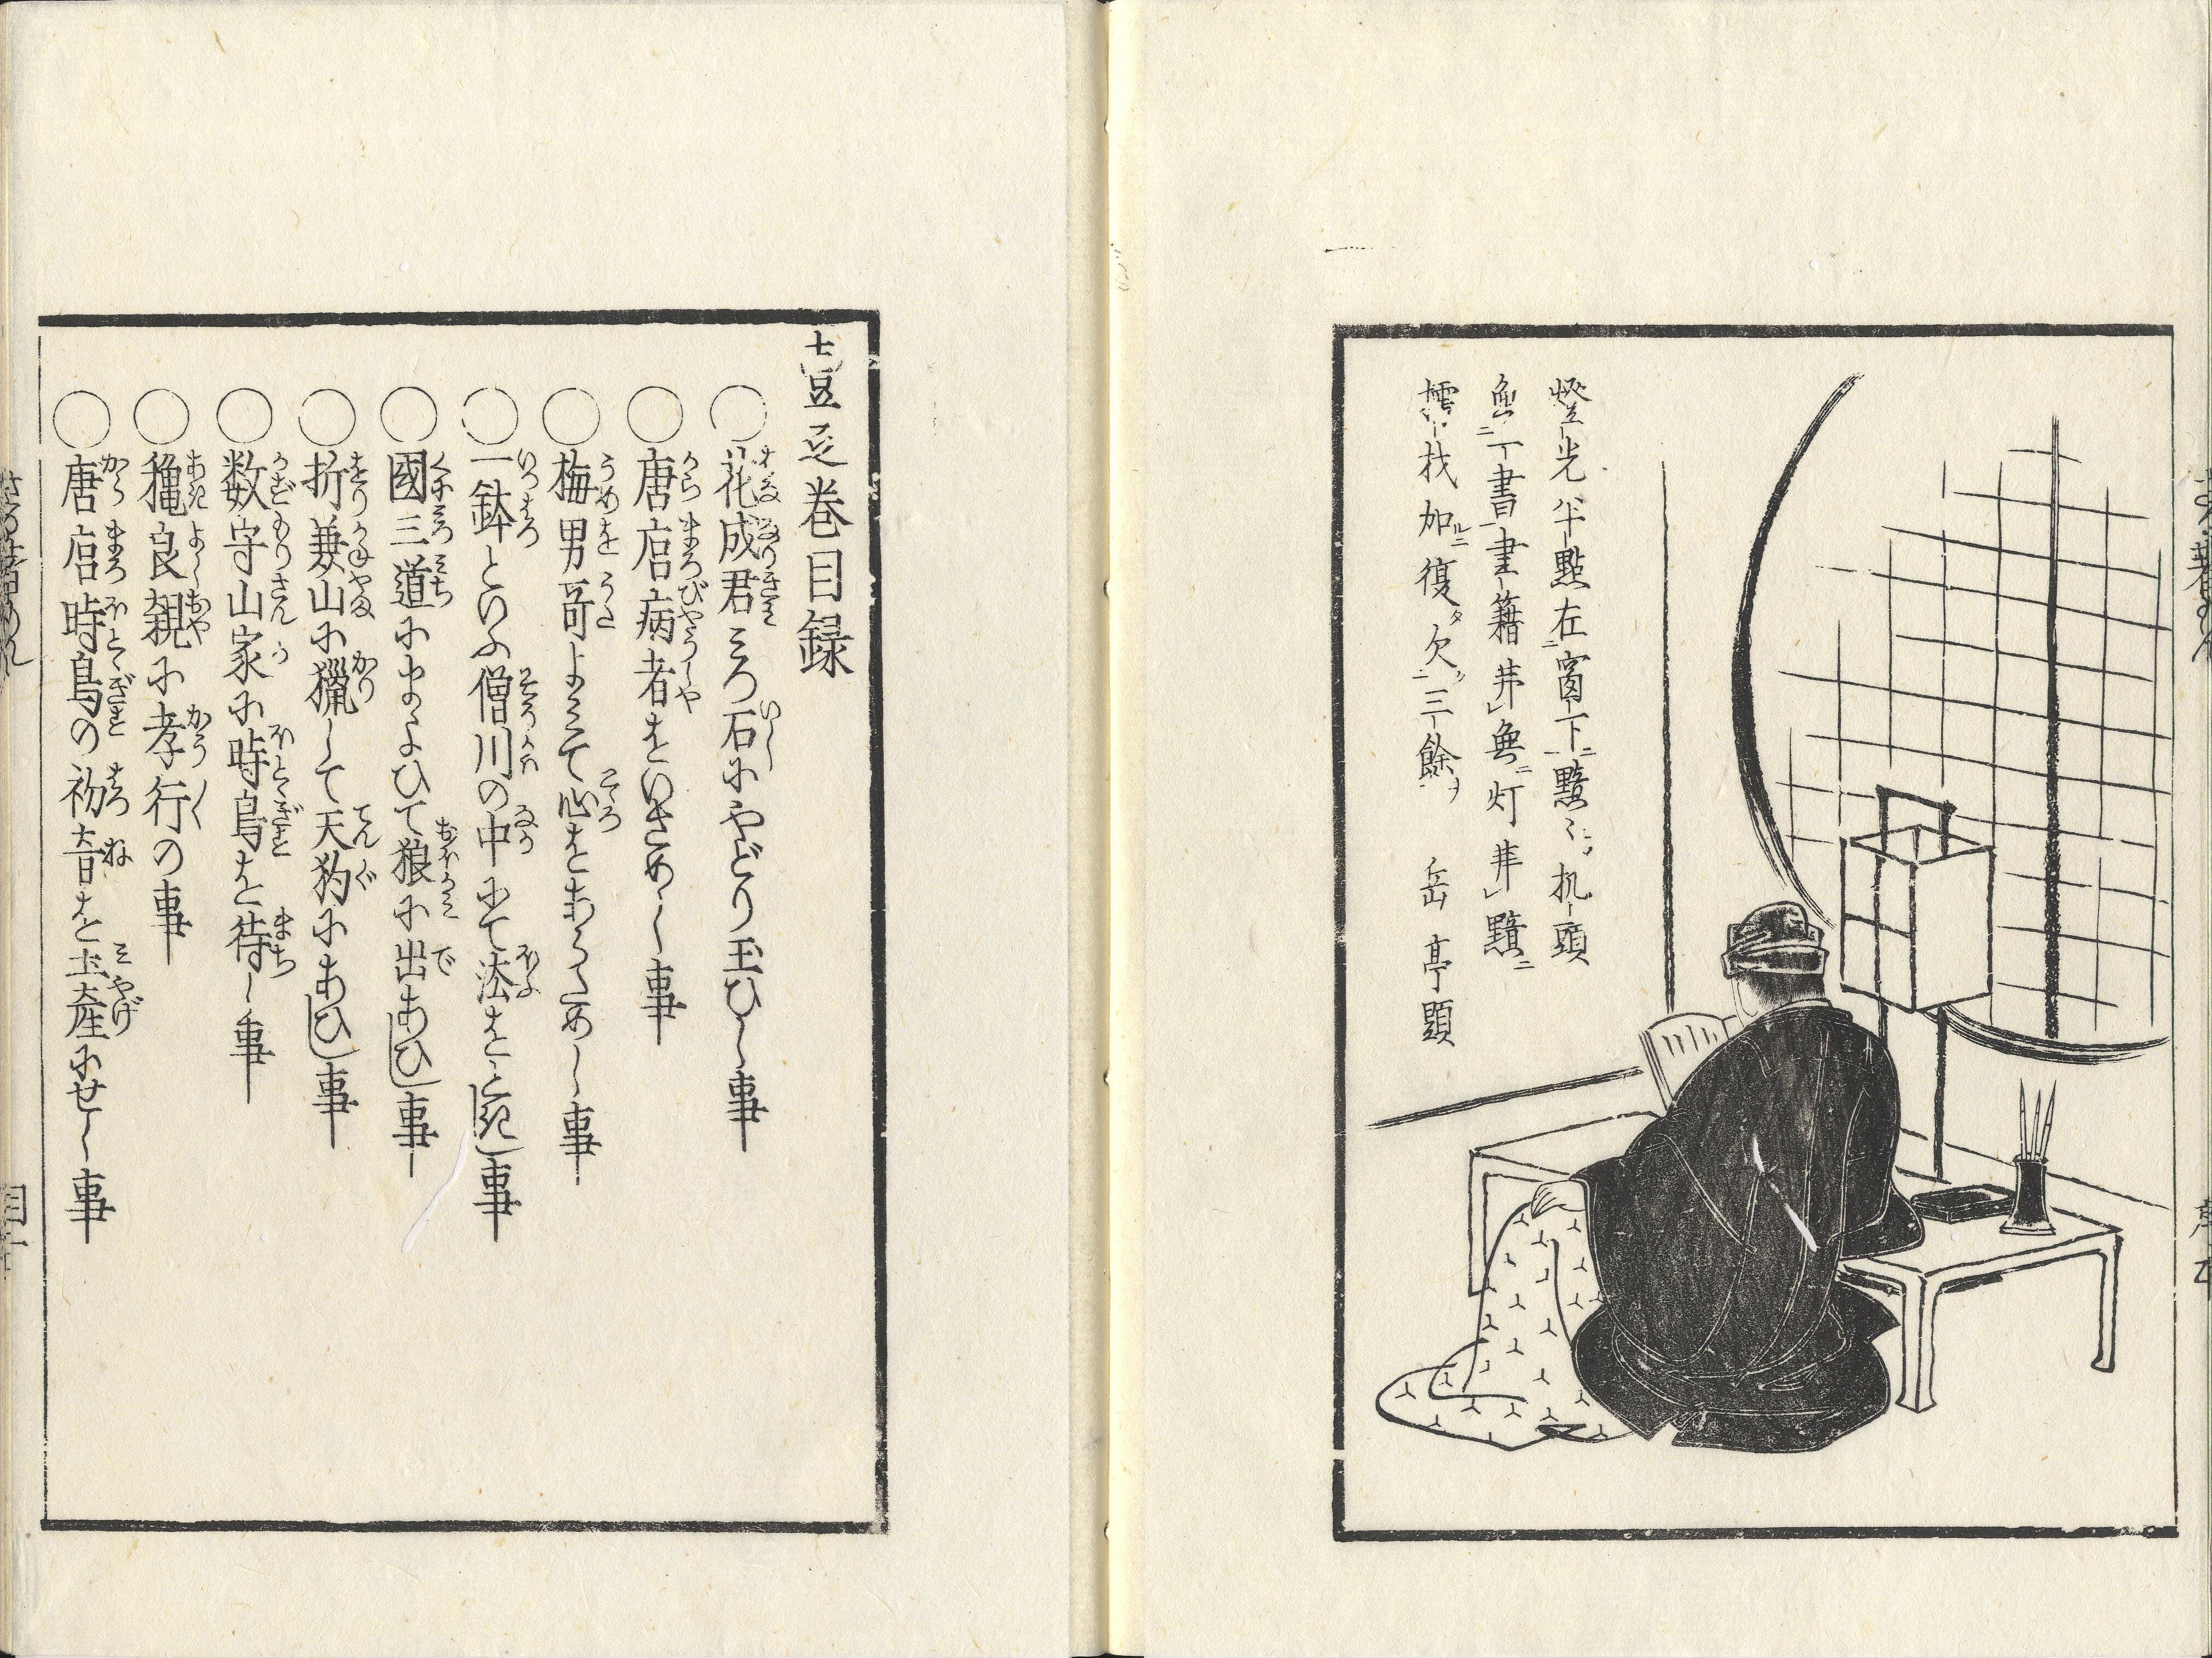 燈光半點左窗下黯〻机頭
魚丁書畫籍丼無灯丼黯
檽找加復欠三餘 岳亭題
壹之巻目録
〇花成君ころ石にやどり玉ひし事
〇唐启病者をいさめし事
〇梅男哥よみて心をあらためし事
〇一鉢といふ僧川の中にて法をとき事
〇國三道にまよひて狼に出あひ事
〇折兼山に獵して天狗にあひ事
〇数守山家に時鳥を待し事
〇龝良親に孝行の事
〇唐启時鳥の初音を土産にせし事